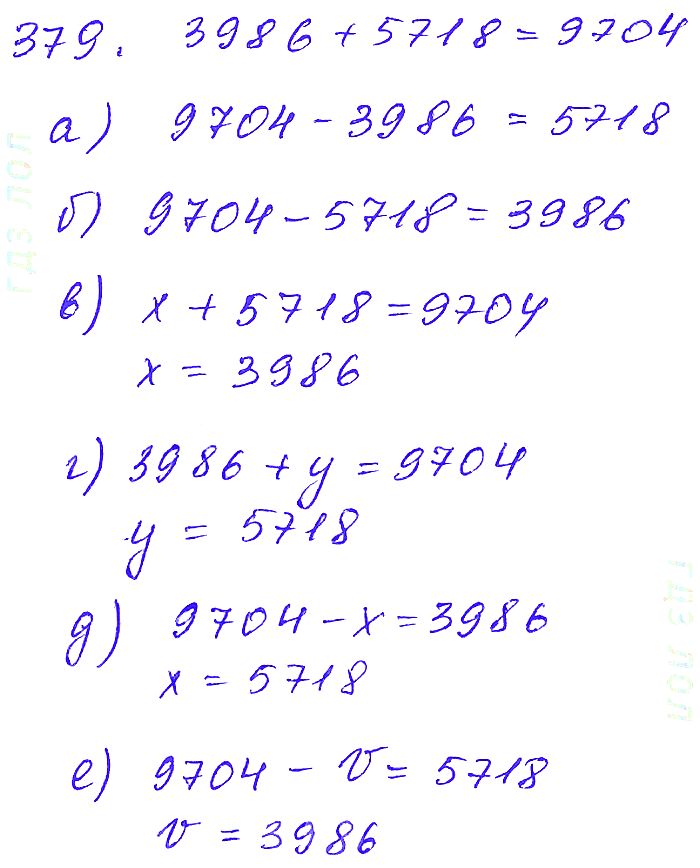 379. 3986 + 5718 = 9704
а) 9704 - 3986 = 5718
б) 9704 - 5718 = 3986
в) x + 5718 = 9704
x = 3986
г) 3986 + y = 9704
y = 5718
д) 9704 - x = 3986
x = 5718
е) 9704 - v = 5718
v = 3986
гдз лол
гдз лол